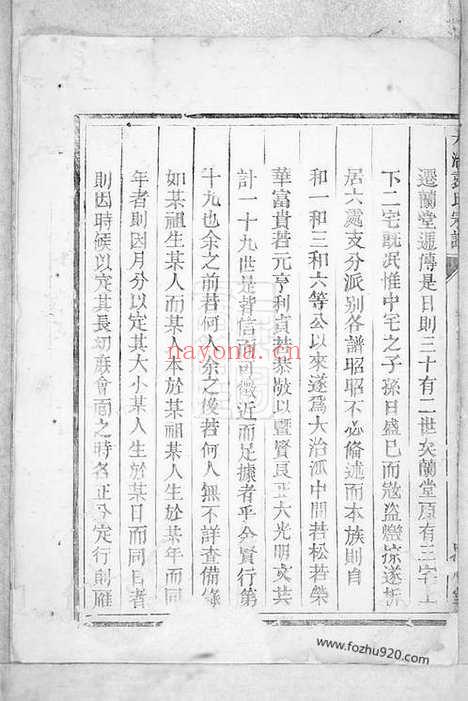 遷蘭堂遞傳是日則三十有二世矣蘭堂原有三宅上
下二宅既泯惟中宅之子孫日盛已而寇盜
居六處支分派別各譜昭昭不必備述而本族則自
和一和三和六等公以來遂爲大治派中間若松若榮
華富貴若元亨利貞若恭敬以暨賢良正大光明文其
計一十九世是皆信而可徵近而足據者乎今賢行第
十九也余之前若何人余之後若何人無不詳查備錄
如某祖生某人而某人本於某祖某人生於某年而同
年者則因月分以定其大小某人生於某日而同日者
則因時候以定其長幼庶會面之時各正分定行創雁
nayona.com
www.fozhu920.com